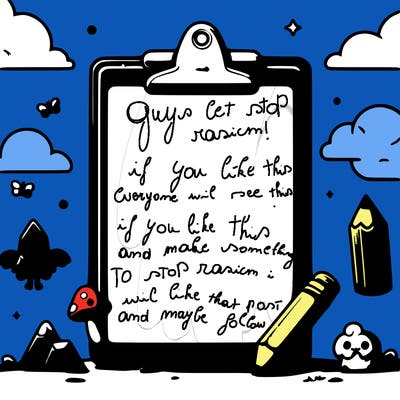 guys let stop
rasicm!
if you like this
Everyone wil see this
if you like this
and make somethig
To stop rasicm i
wil like that post
and maybe follow